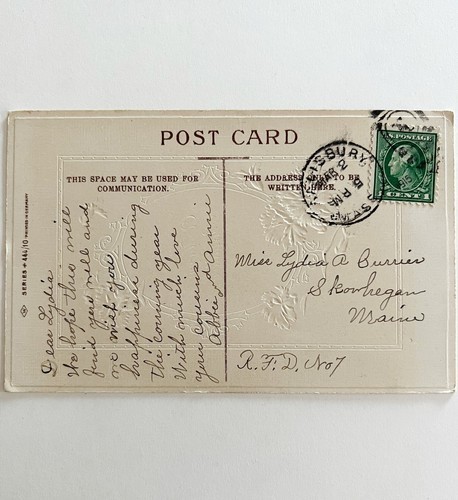 POST CARD
THIS SPACE MAY BE USED FOR
COMMUNICATION.
THE ADDRESS ONLY TO BE
WRITTEN HERE.
SALISBURY,
MASS.
U.S. POSTAGE
CENT 1
SERIES # 444/10 PRINTED IN GERMANY
Dear Lydia
We hope this will
find you well and
we wish you
happiness during
the coming year
With much love
your cousins
Abbie & Annie
Miss Lydia A Currier
Skowhegan
Maine
R.F.D. No 7